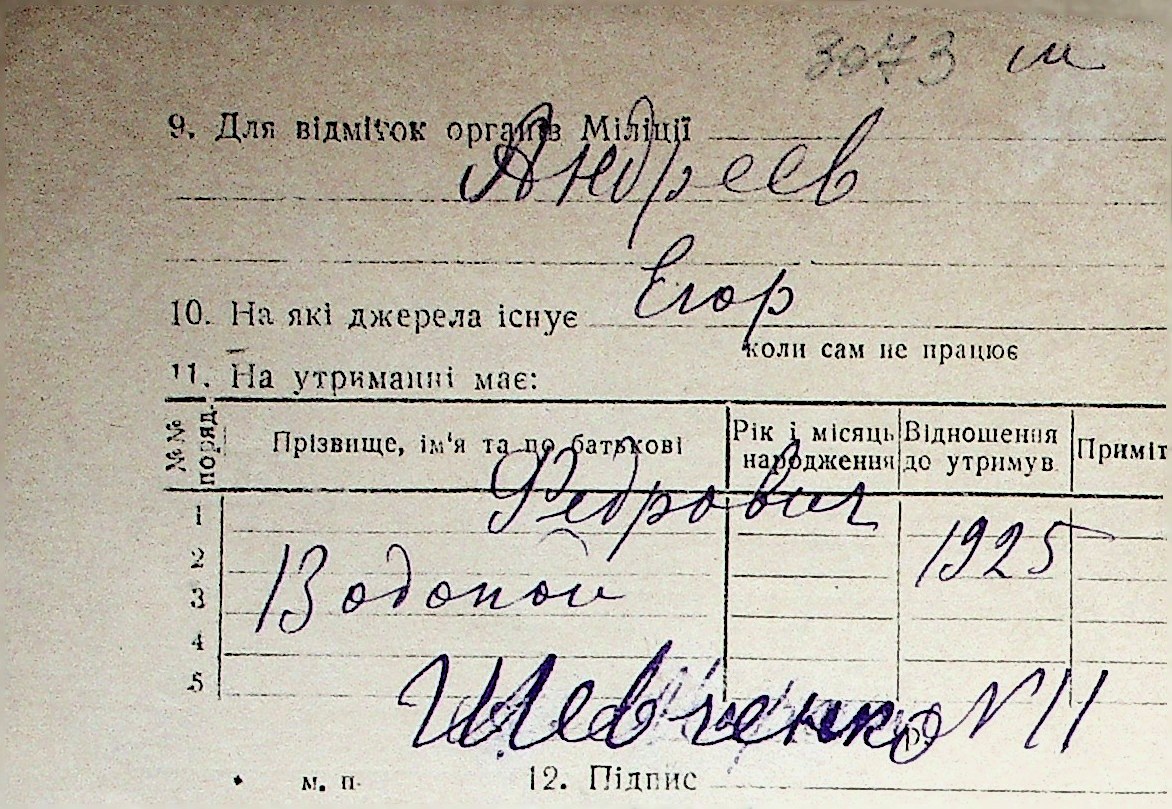 3073 ш
9. Для відміток органів Міліції
Андреев
Егор
10. На які джерела існує
коли сам не працює
11. На утриманні має:
№№ поряд. Прізвище, ім'я та по батькові Рік і місяць народження Відношення до утримув. Приміт
Федрович
1
1925
2
Водопой
3
4
5
Шевченко № 11
м. п. 12. Підпис